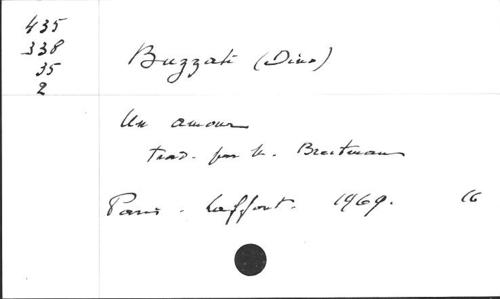 435
338
35
2
Buzzati (Dino)
Un amour
trad. par M. Breitman
Paris. Laffont. 1969. 16